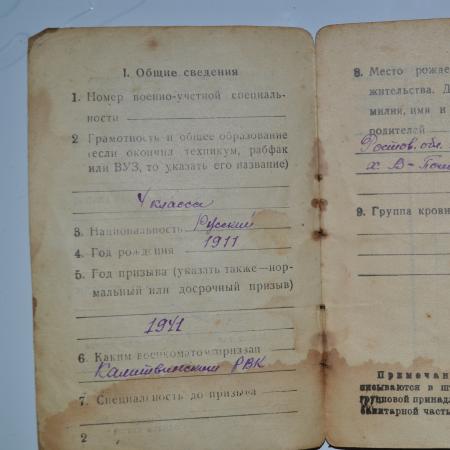 I. Общие сведения
1. Номер военно-учетной специаль-
ности
2 Грамотность и общее образование
(если окончил техникум, рабфак
или ВУЗ, то указать его название)
4 класса
3. Национальность Русский
4. Год рождения 1911
5. Год призыва (указать также—нор-
мальный или досрочный призыв)
1941
6. Каким военкоматом призван
Калитвинский РВК
7. Специальность до призыва
2
8. Место рожде
жительства. Д
милия, имя и
родителей
Ростов. обл.
х В-
9. Группа крови
Примечан
вписываются в ш
групповой принад
санитарной часть